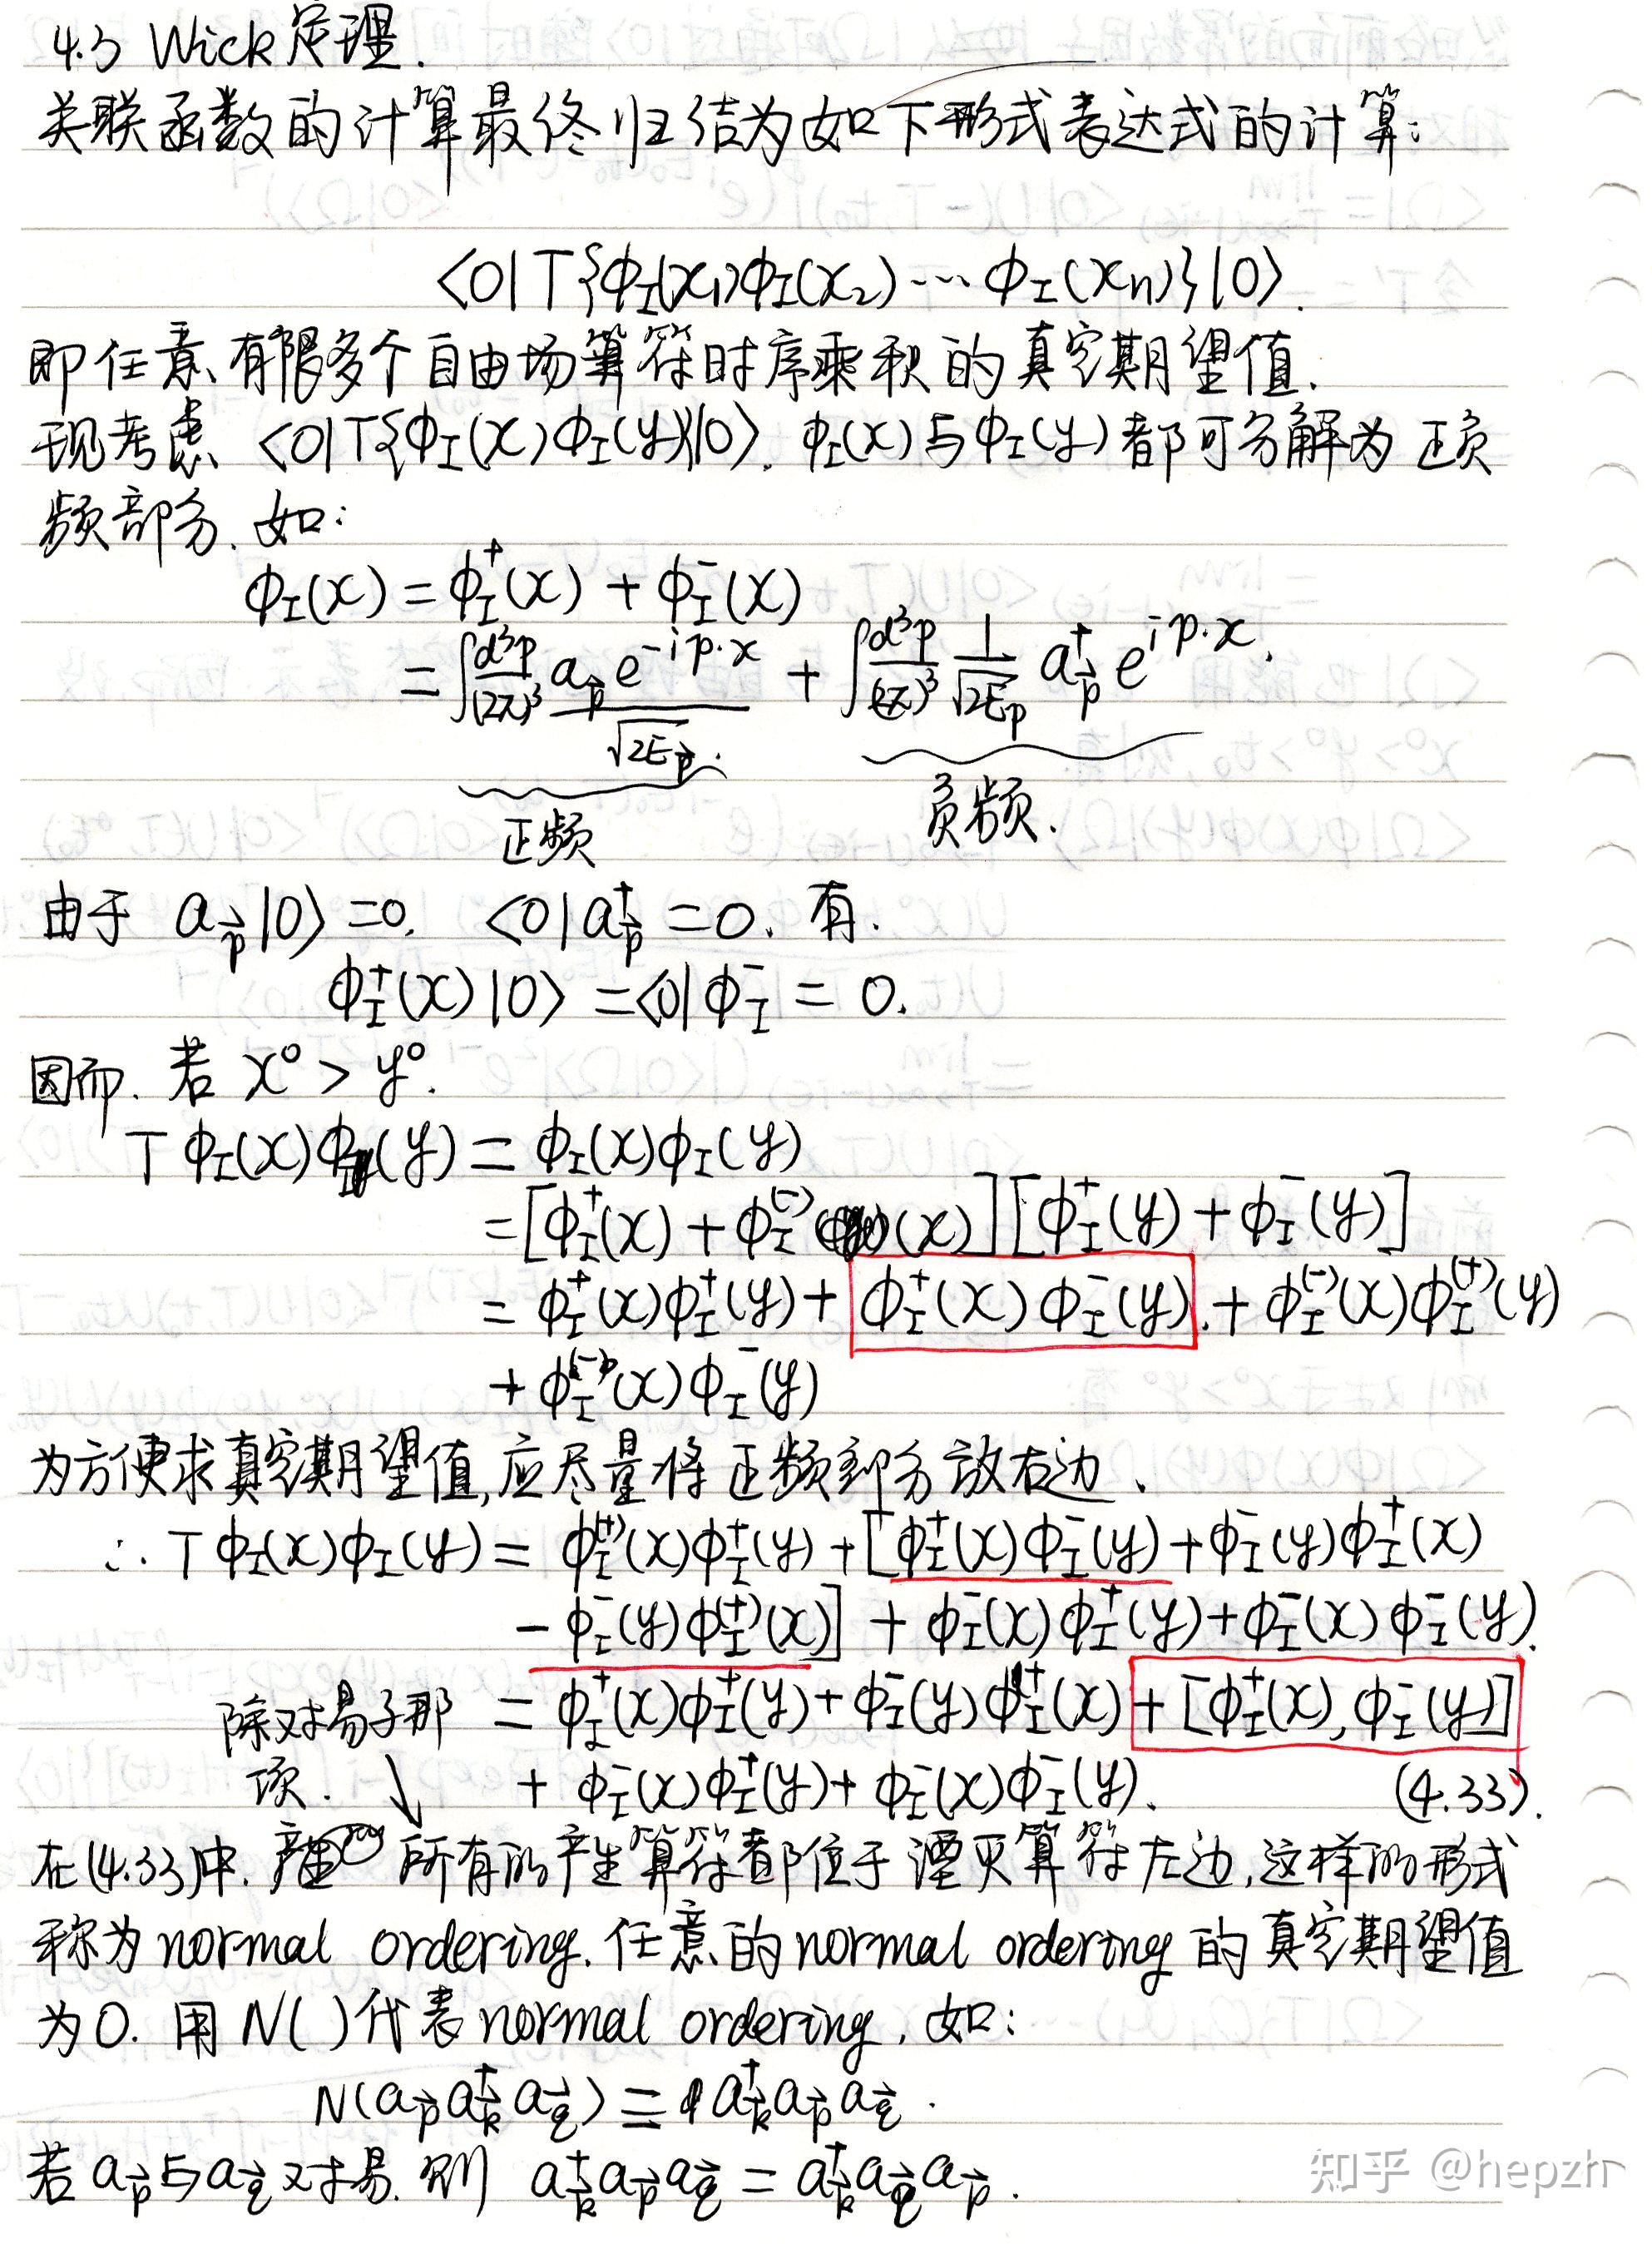 4.3 Wick定理.
关联函数的计算最终归结为如下形式表达式的计算:
<0|T{φ_I(x₁)φ_I(x₂)…φ_I(x_n)}|0>.
即任意有限多个自由场算符时序乘积的真空期望值.
现考虑 <0|T{φ_I(x)φ_I(y)}|0>. φ_I(x)与φ_I(y)都可分解为正负
频部分. 如:
φ_I(x) = φ_I⁺(x) + φ_I⁻(x)
= ∫d³p/(2π)³ a_p⃗ e^{-ip·x}/√(2E_p⃗) + ∫d³p/(2π)³ 1/√(2E_p) a_p⃗^† e^{ip·x}.
正频 负频.
由于 a_p⃗|0> = 0, <0|a_p⃗^† = 0. 有.
φ_I⁺(x)|0> = <0|φ_I⁻ = 0.
因而. 若 x⁰ > y⁰.
Tφ_I(x)φ_I(y) = φ_I(x)φ_I(y)
= [φ_I⁺(x) + φ_I⁽⁻⁾(x)][φ_I⁺(y) + φ_I⁻(y)]
= φ_I⁺(x)φ_I⁺(y) + φ_I⁺(x)φ_I⁻(y). + φ_I⁽⁻⁾(x)φ_I⁽⁺⁾(y)
+ φ_I⁽⁻⁾(x)φ_I⁻(y)
为方便求真空期望值,应尽量将正频部分放右边.
∴ Tφ_I(x)φ_I(y) = φ_I⁽⁺⁾(x)φ_I⁺(y) + [φ_I⁺(x)φ_I⁻(y) + φ_I⁻(y)φ_I⁺(x)
- φ_I⁻(y)φ_I⁽⁺⁾(x)] + φ_I⁻(x)φ_I⁺(y) + φ_I⁻(x)φ_I⁻(y).
= φ_I⁺(x)φ_I⁺(y) + φ_I⁻(y)φ_I⁺(x) + [φ_I⁺(x), φ_I⁻(y)]
+ φ_I⁻(x)φ_I⁺(y) + φ_I⁻(x)φ_I⁻(y). (4.33).
除对易子那
项. ↓
在(4.33)中. 所有的产生算符都位于湮灭算符左边,这样的形式
称为normal ordering. 任意的normal ordering的真空期望值
为0. 用N( )代表normal ordering, 如:
N(a_p⃗ a_k⃗^† a_q⃗) = a_k⃗^† a_p⃗ a_q⃗.
若a_p⃗与a_q⃗对易. 则 a_k⃗^† a_p⃗ a_q⃗ = a_k⃗^† a_q⃗ a_p⃗.
知乎 @hepzh